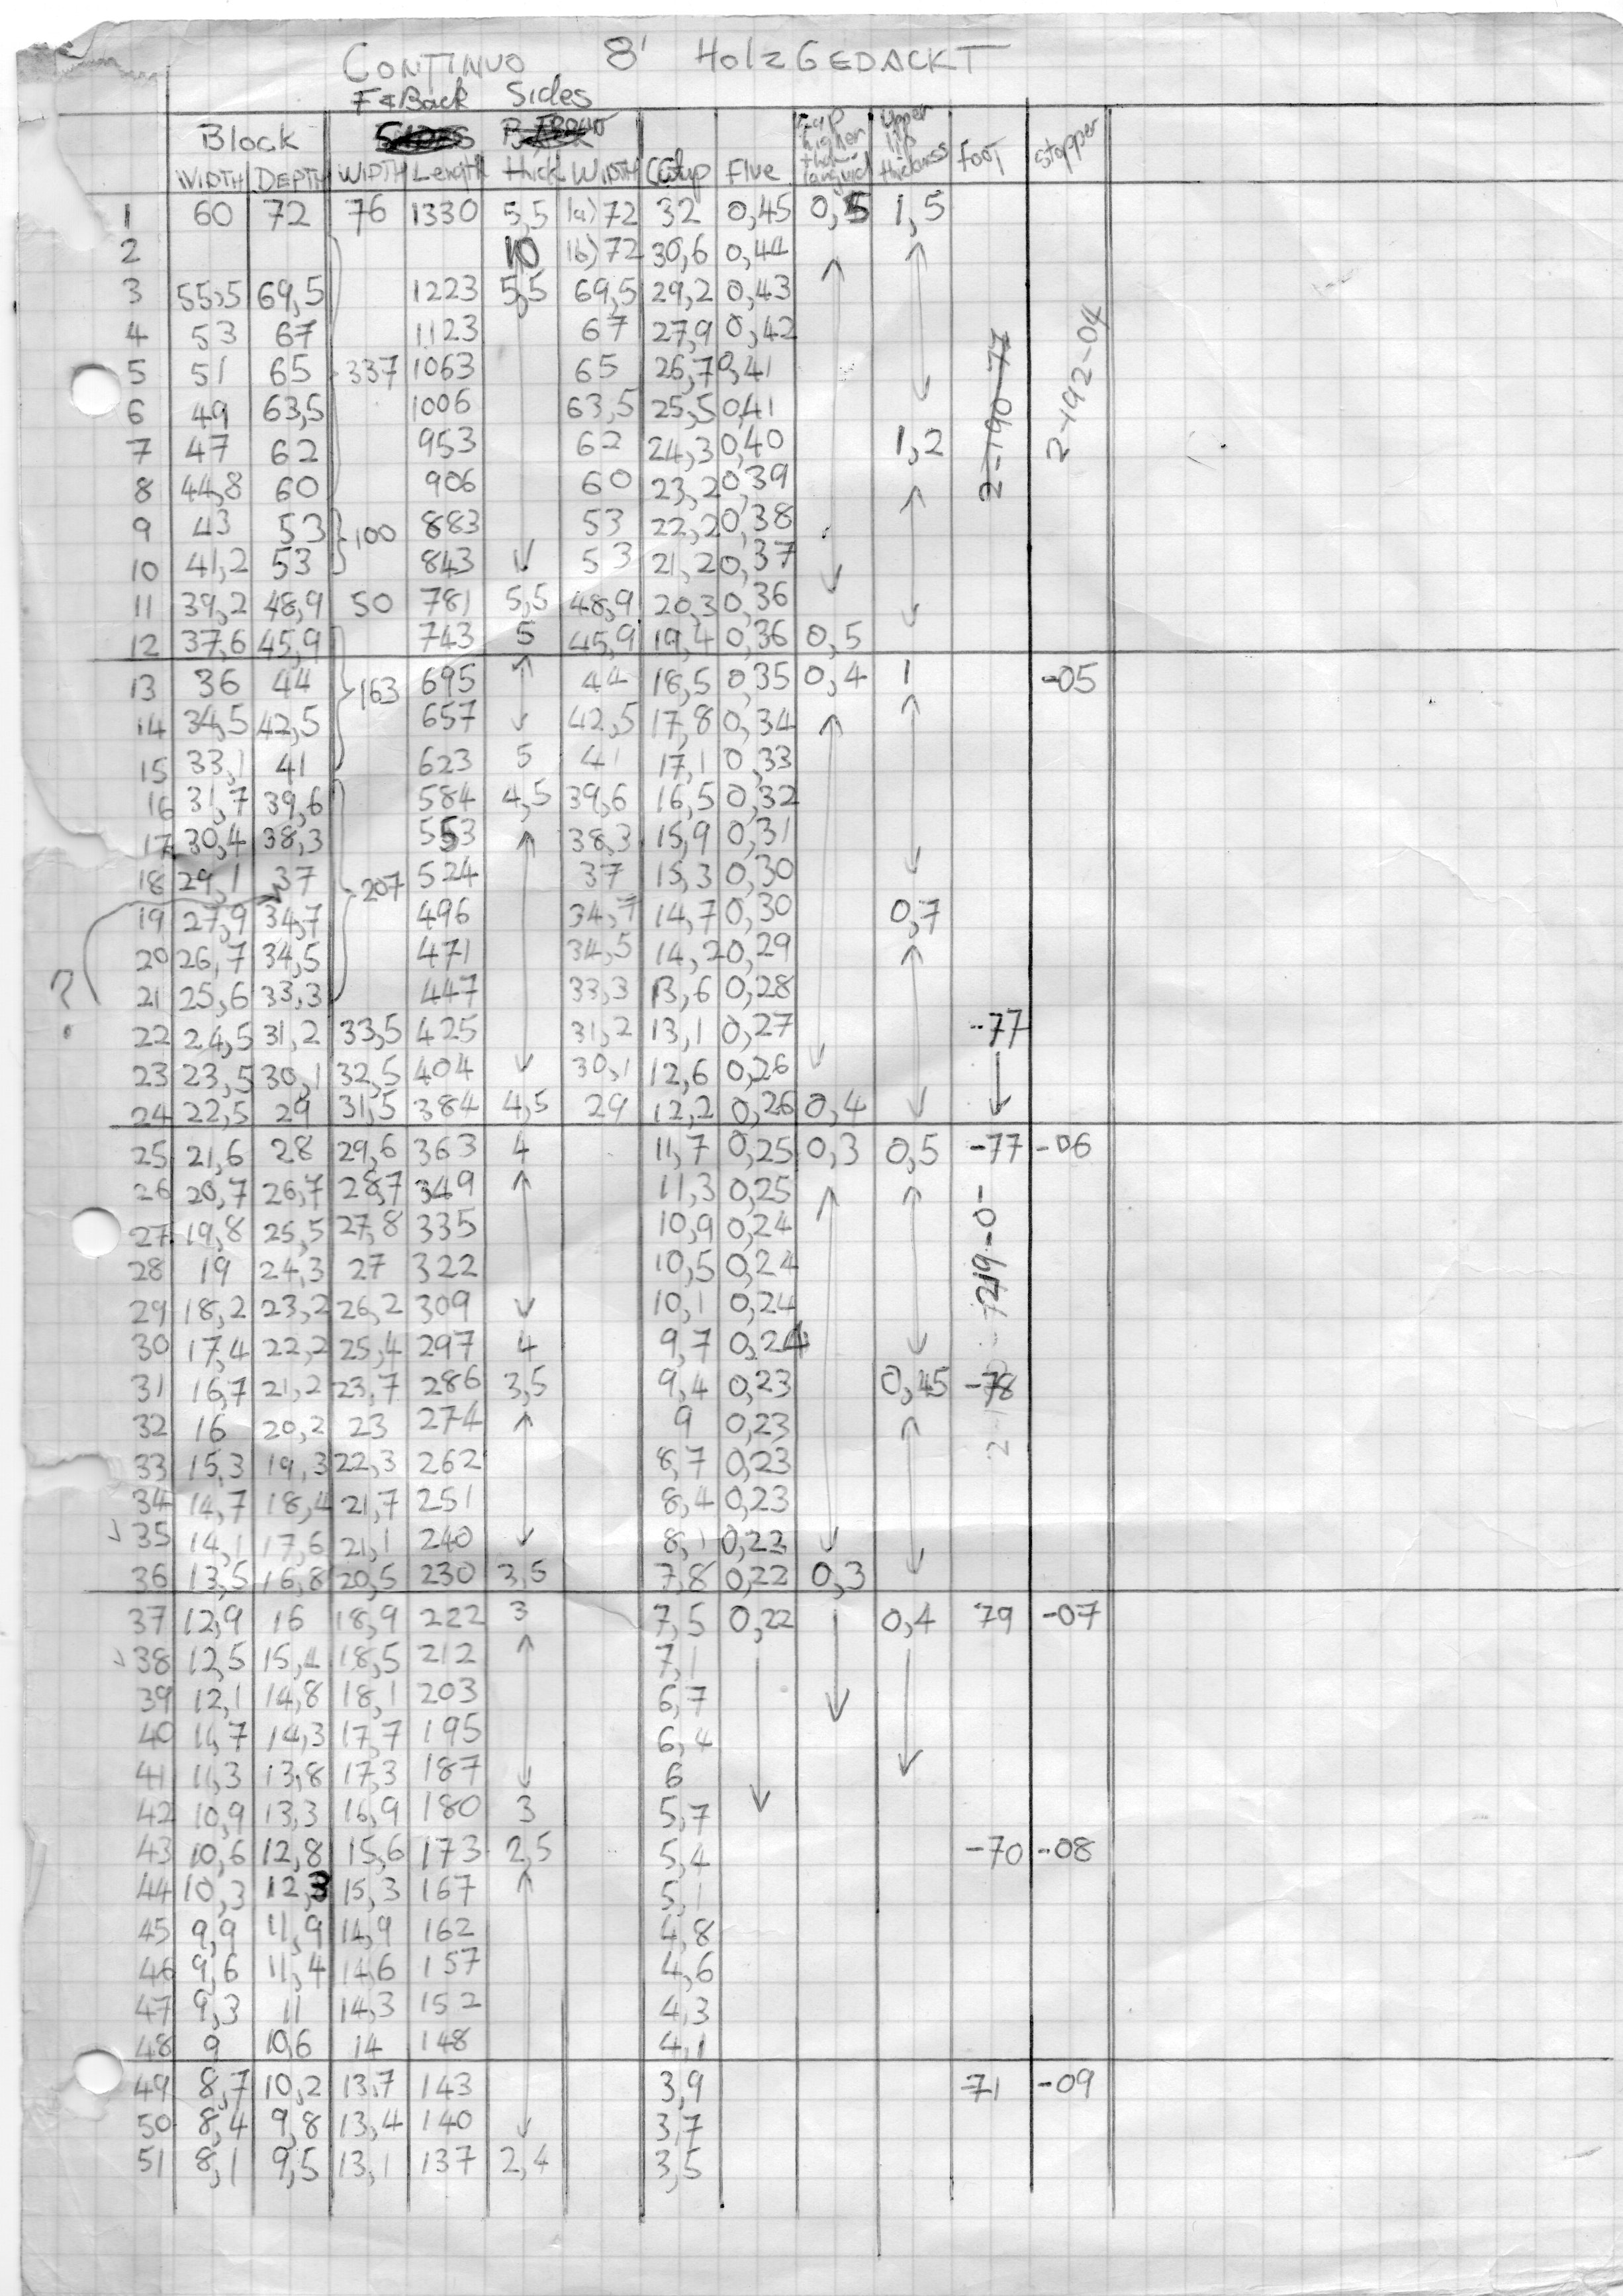 CONTINUO 8' HolzGEDACKT
F & Back Sides
Block
WIDTH DEPTH WIDTH Length thick WIDTH Cutup Flue Cap higher than languid Upper lip thickness FOOT Stopper
1 60 72 76 1330 5,5 1a) 72 32 0,45 0,5 1,5
2 10 1b) 72 30,6 0,44
3 55,5 69,5 1223 5,5 69,5 29,2 0,43
4 53 67 1123 67 27,9 0,42
5 51 65 337 1063 65 26,7 0,41
6 49 63,5 1006 63,5 25,5 0,41
7 47 62 953 62 24,3 0,40 1,2 2-190-77 2-192-04
8 44,8 60 906 60 23,2 0,39
9 43 53 100 883 53 22,2 0,38
10 41,2 53 843 53 21,2 0,37
11 39,2 48,9 50 781 5,5 48,9 20,3 0,36
12 37,6 45,9 743 5 45,9 19,4 0,36 0,5
13 36 44 163 695 44 18,5 0,35 0,4 1 -05
14 34,5 42,5 657 42,5 17,8 0,34
15 33,1 41 623 5 41 17,1 0,33
16 31,7 39,6 584 4,5 39,6 16,5 0,32
17 30,4 38,3 553 38,3 15,9 0,31
18 29,1 37 207 524 37 15,3 0,30
19 27,9 34,7 496 34,7 14,7 0,30 0,7
20 26,7 34,5 471 34,5 14,2 0,29
? 21 25,6 33,3 447 33,3 13,6 0,28
22 24,5 31,2 33,5 425 31,2 13,1 0,27 -77
23 23,5 30,1 32,5 404 30,1 12,6 0,26
24 22,5 29 31,5 384 4,5 29 12,2 0,26 0,4
25 21,6 28 29,6 363 4 11,7 0,25 0,3 0,5 -77 -06
26 20,7 26,7 28,7 349 11,3 0,25
27 19,8 25,5 27,8 335 10,9 0,24
28 19 24,3 27 322 10,5 0,24
29 18,2 23,2 26,2 309 10,1 0,24
30 17,4 22,2 25,4 297 4 9,7 0,24
31 16,7 21,2 23,7 286 3,5 9,4 0,23 0,45 -78
32 16 20,2 23 274 9 0,23
33 15,3 19,3 22,3 262 8,7 0,23
34 14,7 18,4 21,7 251 8,4 0,23
35 14,1 17,6 21,1 240 8,1 0,23
36 13,5 16,8 20,5 230 3,5 7,8 0,22 0,3
37 12,9 16 18,9 222 3 7,5 0,22 0,4 79 -07
38 12,5 15,4 18,5 212 7,1
39 12,1 14,8 18,1 203 6,7
40 11,7 14,3 17,7 195 6,4
41 11,3 13,8 17,3 187 6
42 10,9 13,3 16,9 180 3 5,7
43 10,6 12,8 15,6 173 2,5 5,4 -70 -08
44 10,3 12,3 15,3 167 5,1
45 9,9 11,9 14,9 162 4,8
46 9,6 11,4 14,6 157 4,6
47 9,3 11 14,3 152 4,3
48 9 10,6 14 148 4,1
49 8,7 10,2 13,7 143 3,9 71 -09
50 8,4 9,8 13,4 140 3,7
51 8,1 9,5 13,1 137 2,4 3,5